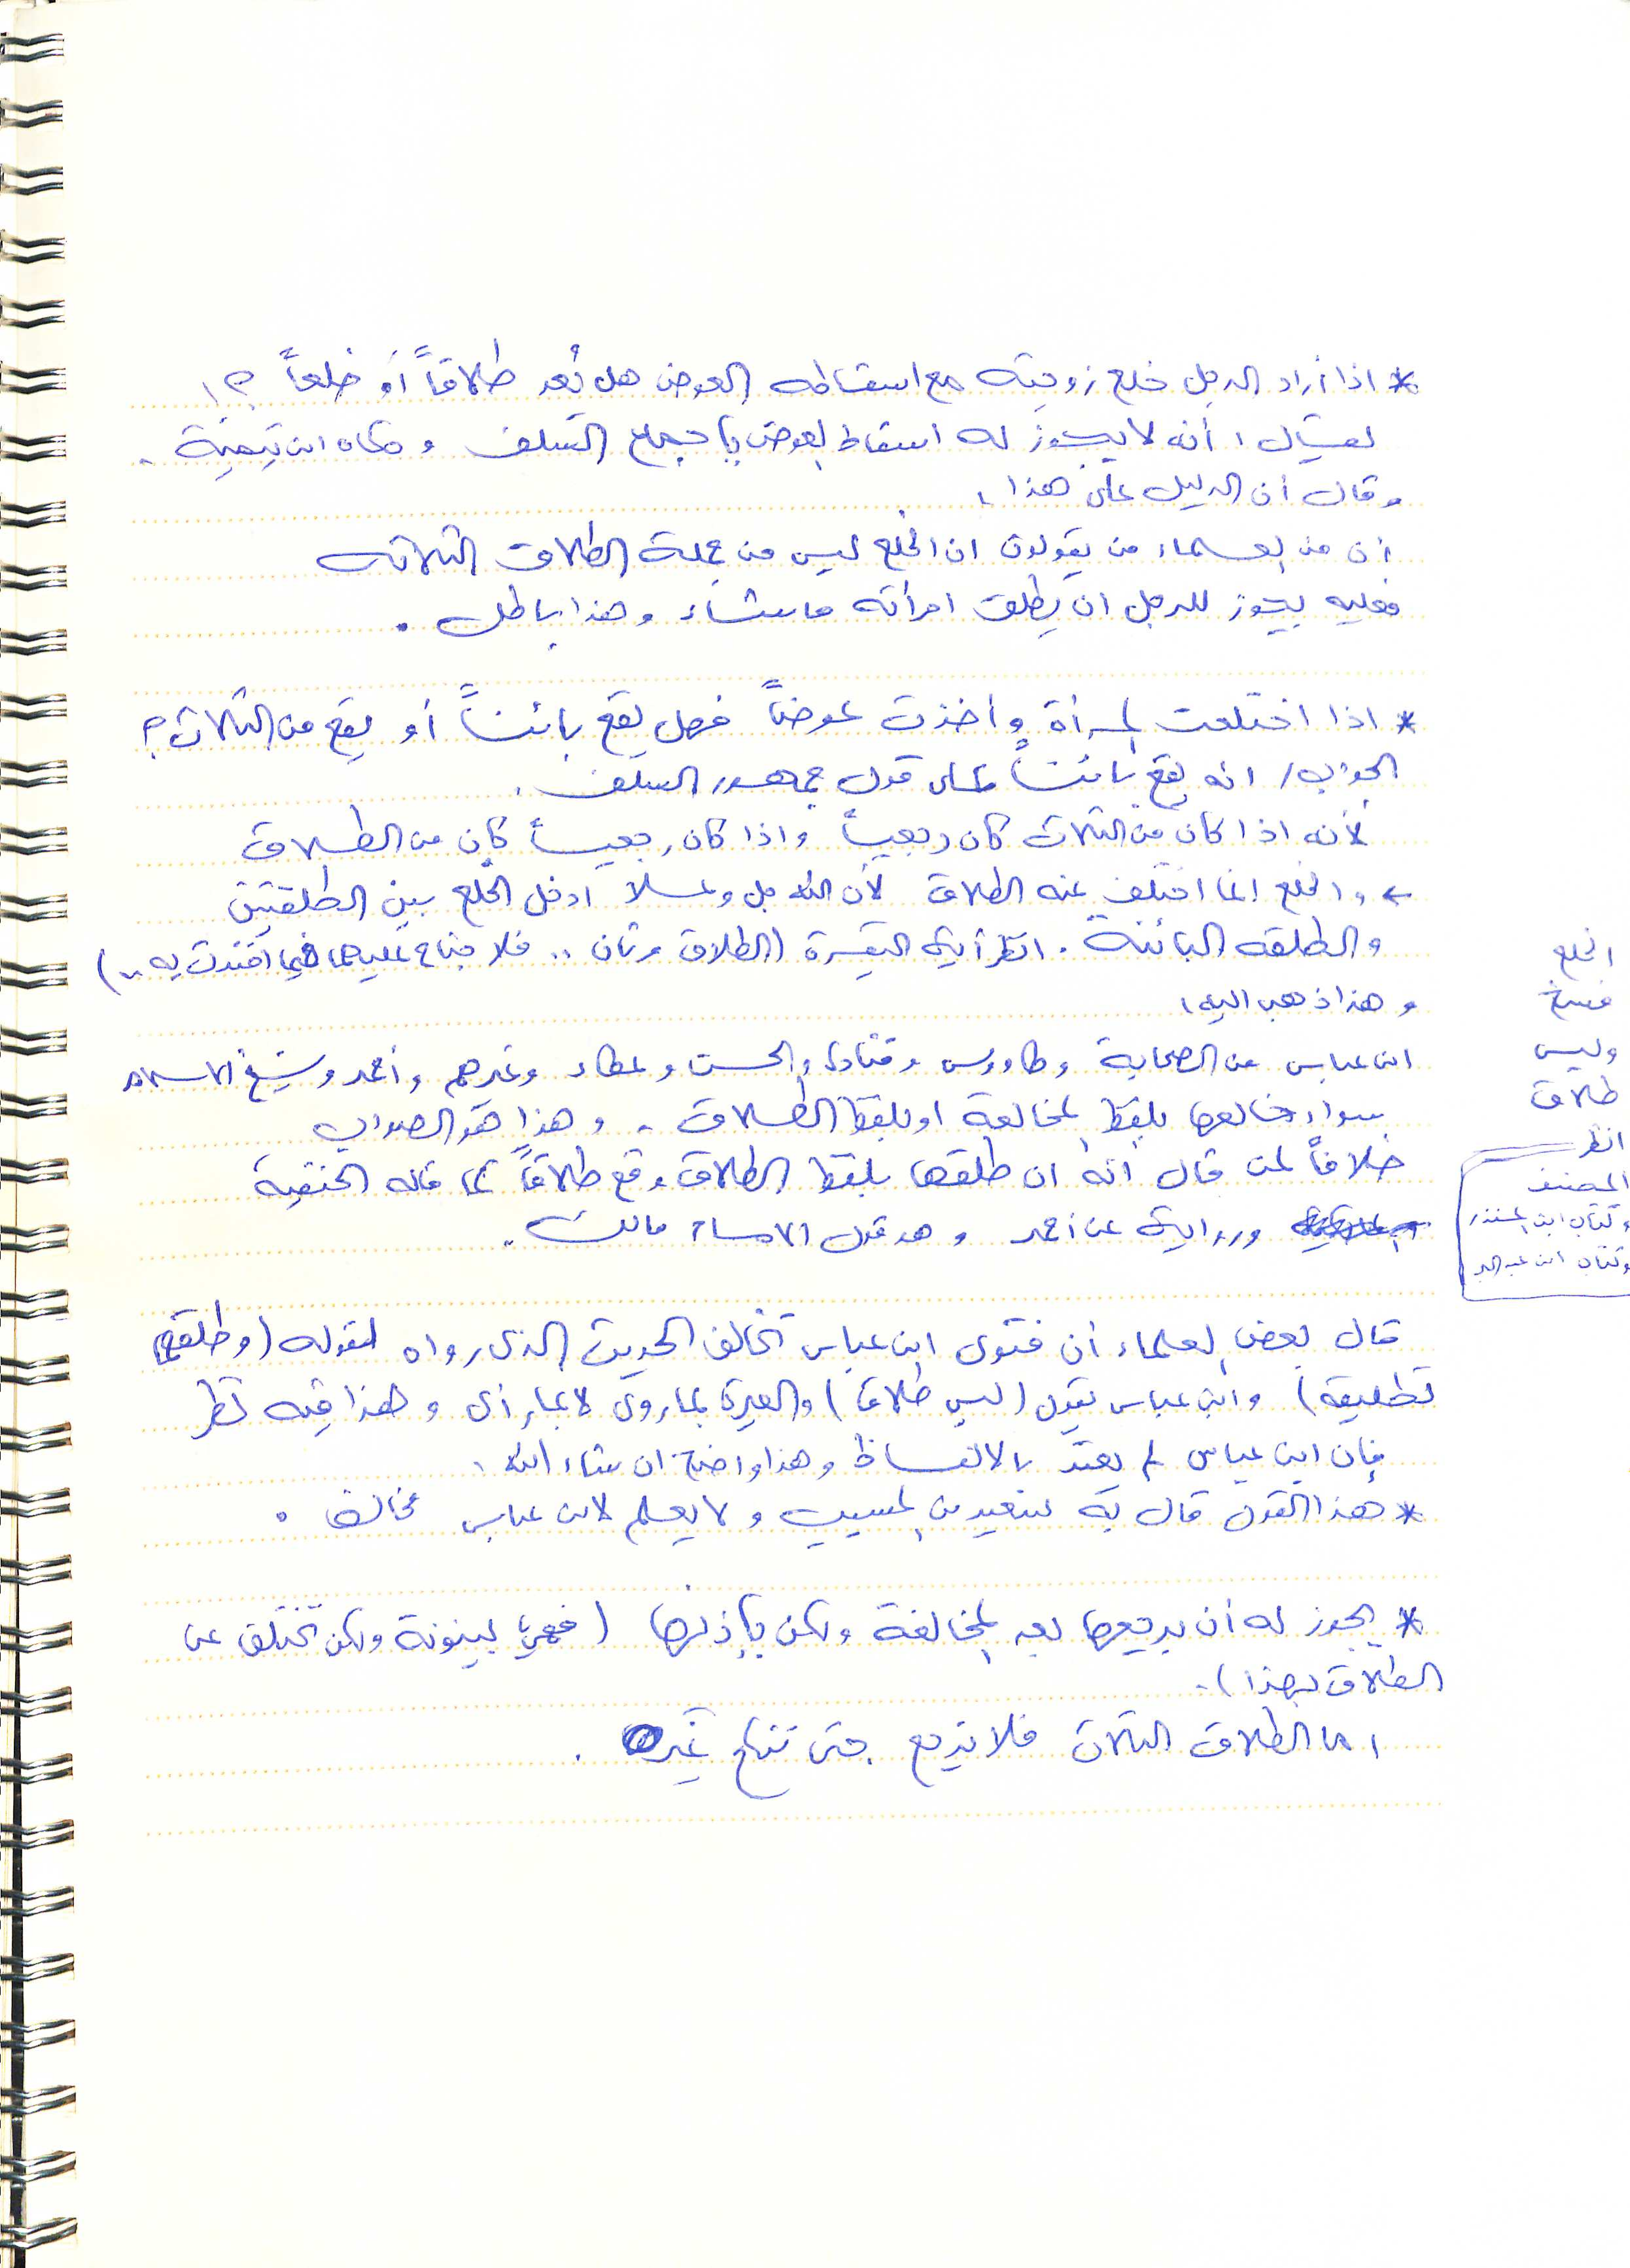 * اذا أراد الرجل خلع زوجته مع اسقاطه العوض هل يُعد طلاقاً أو خلعاً ؟!
يقال : أنه لا يجوز له اسقاط العوض بإجماع السلف وحكاه ابن تيمية .
وقال أن الدليل على هذا :
أن من العلماء من يقولون ان الخلع ليس من جملة الطلاق الثلاثه
فعليه يجوز للرجل ان يطلق امرأته ما يشاء وهذا باطل .
* اذا اختلعت المرأة وأخذت عوضاً فهل يقع بائناً أو يقع من الثلاث ؟
الجواب / انه يقع بائناً على قول جمهور السلف .
لأنه اذا كان من الثلاث كان رجعياً واذا كان رجعياً كان من الطلاق
← والخلع انما اختلف عنه الطلاق لأن الله جل وعلا ادخل الخلع بين الطلقتين
والطلقه البائنة . انظر آية البقرة (الطلاق مرتان .. فلا جناح عليهما فيما افتدت به ..)
وهذا ذهب اليه :
ابن عباس من الصحابة وطاووس وقتادة والحسن وعطاء وغيرهم وأحمد وشيخ الاسلام
سواء خالعها بلفظ المخالعة او بلفظ الطلاق . وهذا هو الصواب
خلافاً لمن قال انه ان طلقها بلفظ الطلاق وقع طلاقاً كما قاله الحنفية
ورواية عن أحمد وهو قول الامام مالك .
الخلع
فسخ
وليس
طلاق
انظر
المصنف
وكتاب ابن المنذر
وكتاب ابن عبد البر
قال بعض العلماء أن فتوى ابن عباس تخالف الحديث الذي رواه لقوله (وطلقها
تطليقة) وابن عباس يقول (ليس طلاقا) والعبرة بما روى لا بما رأى وهذا فيه نظر
فإن ابن عباس لم يعتد بالالفاظ وهذا واضح ان شاء الله .
* هذا القول قال به سعيد بن المسيب ولا يعلم لابن عباس مخالف .
* يجوز له أن يرجعها بعد المخالعة ولكن بإذنها (فهي بينونة ولكن تختلف عن
الطلاق بهذا) .
اما الطلاق الثلاث فلا ترجع حتى تنكح غيره .